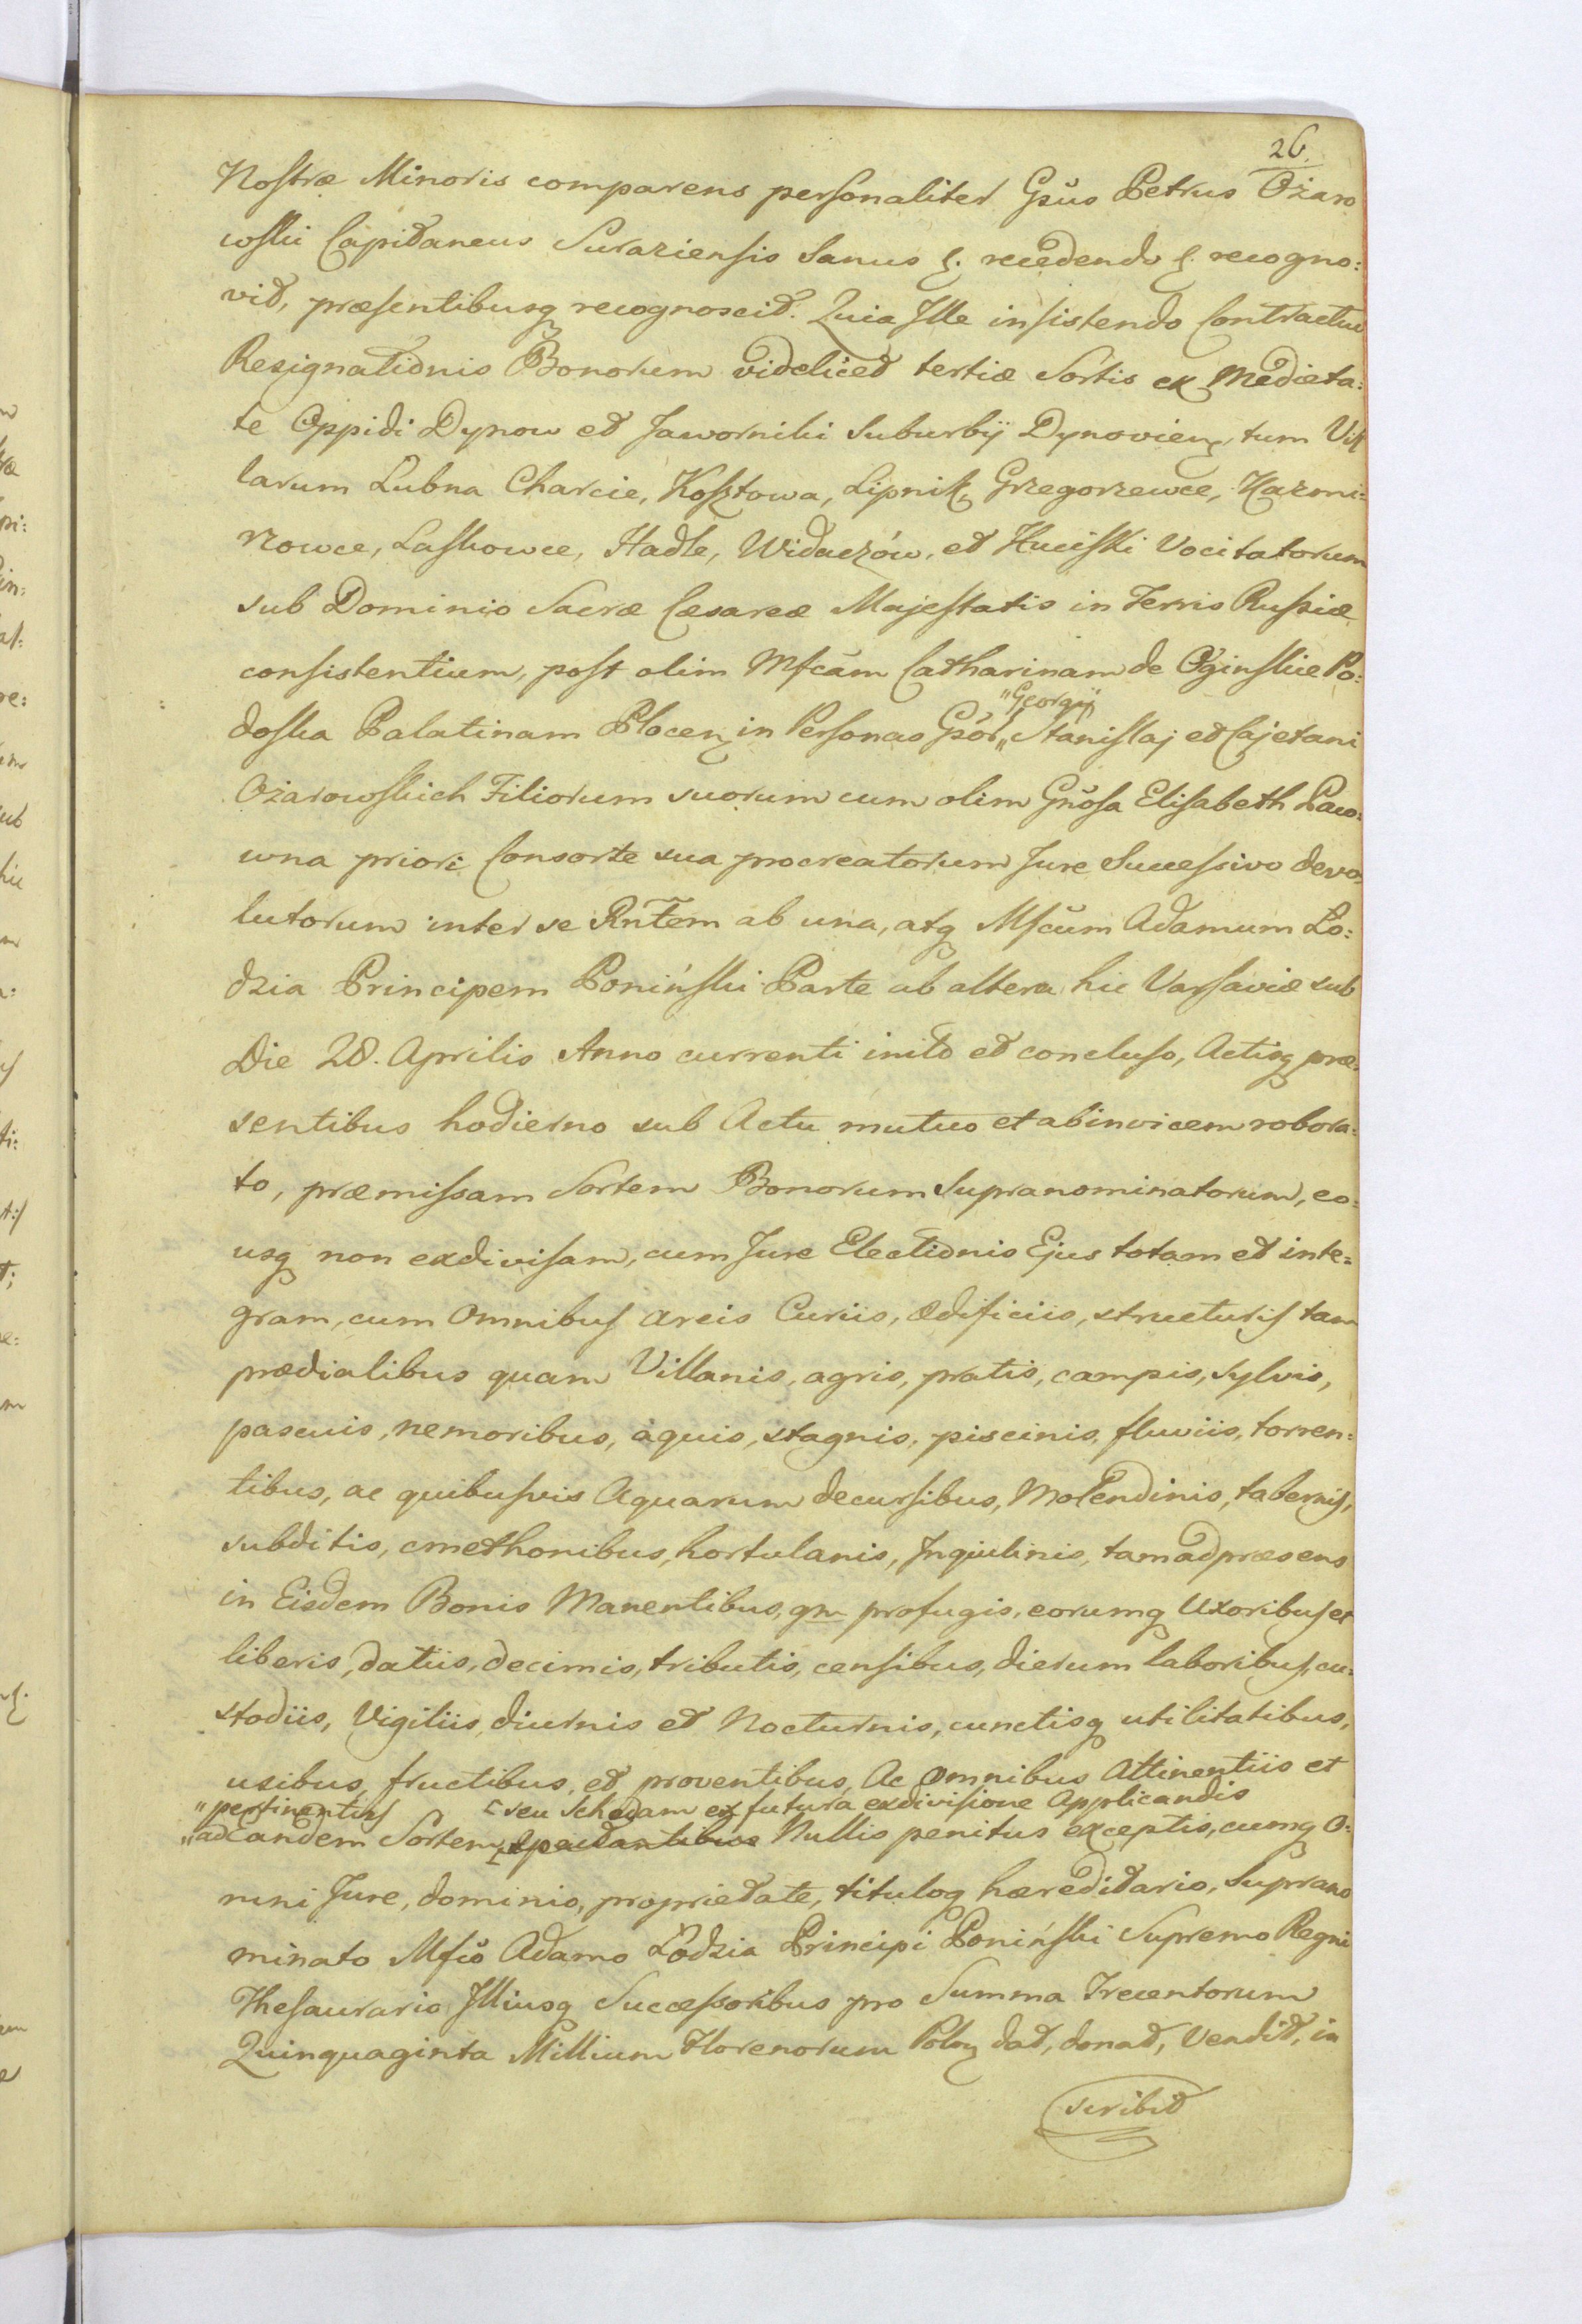 26.
Nostræ Minoris comparens personaliter Gsus Petrus Ożaro
wski Capitaneus Suraziensis Sanus &. recedendo &. recogno:
vit, præsentibusq recognoscit. Quia Ille insistendo Contractui
Resignationis Bonorum videlicet tertiæ Sortis ex Medieta:
te Oppidi Dynow et Jawornik Suburbÿ Dynovien, tum Vil
larum Lubna Charcie, Kosztowa, Lipnik, Grzegorzewce, Kazmi:
rzowce, Laskowce, Hadle, Widaczów, et Huciski Vocitatorum
sub Dominio Sacræ Cæsareæ Majestatis in Terris Russiæ
consistentium, post olim Mfcam Catharinam de Oginskie Po:
"Georgÿ
doska Palatinam Plocen in Personas Gsor" Stanislaj et Cajetani
Ożarowskich Filiorum suorum cum olim Gnosa Elisabeth Paco:
wna priori Consorte sua procreatorum Jure Successivo devo:
lutorum inter se Rntem ab una, atq Mfcum Adamum Lo:
dzia Principem Poniński Parte ab altera hic Varsaviæ sub
Die 28. Aprilis Anno currenti inito et concluso, Actisq præ:
sentibus hodierno sub Actu mutuo et abinvicem robora:
to, præmissam Sortem Bonorum Supranominatorum, eo:
usq non exdivisam, cum Jure Electionis Ejus totam et inte=
gram, cum Omnibus areis Curiis, ædificiis, structuris tam
prædialibus quam Villanis, agris, pratis, campis, sylvis,
pascuis, nemoribus, aquis, stagnis, piscinis, fluviis, torren:
tibus, ac quibusvis Aquarum decursibus, Molendinis, tabernis,
subditis, cmethonibus, hortulanis, Inquilinis, tam ad præsens
in Eisdem Bonis Manentibus, qm profugis, eorumq Uxoribus et
liberis, datiis, decimis, tributis, censibus, dierum laboribus, cu:
stodiis, Vigiliis, diurnis et Nocturnis, cunctisq utilitatibus,
usibus, fructibus, et proventibus, Ac Omnibus Attinentiis et
"pertinentiis seu Schedam ex futura exdivisione Applicandis
"ad Eandem Sortem spectantibus Nullis penitus exceptis, cumq O:
mni Jure, dominio, proprietate, tituloq hæreditario, Suprano
minato Mfco Adamo Łodzia Principi Poniński Supremo Regni
Thesaurario Illiusq Successoribus pro Summa Trecentorum
Quinquaginta Millium Florenorum Polon dat, donat, Vendit, in
scribit